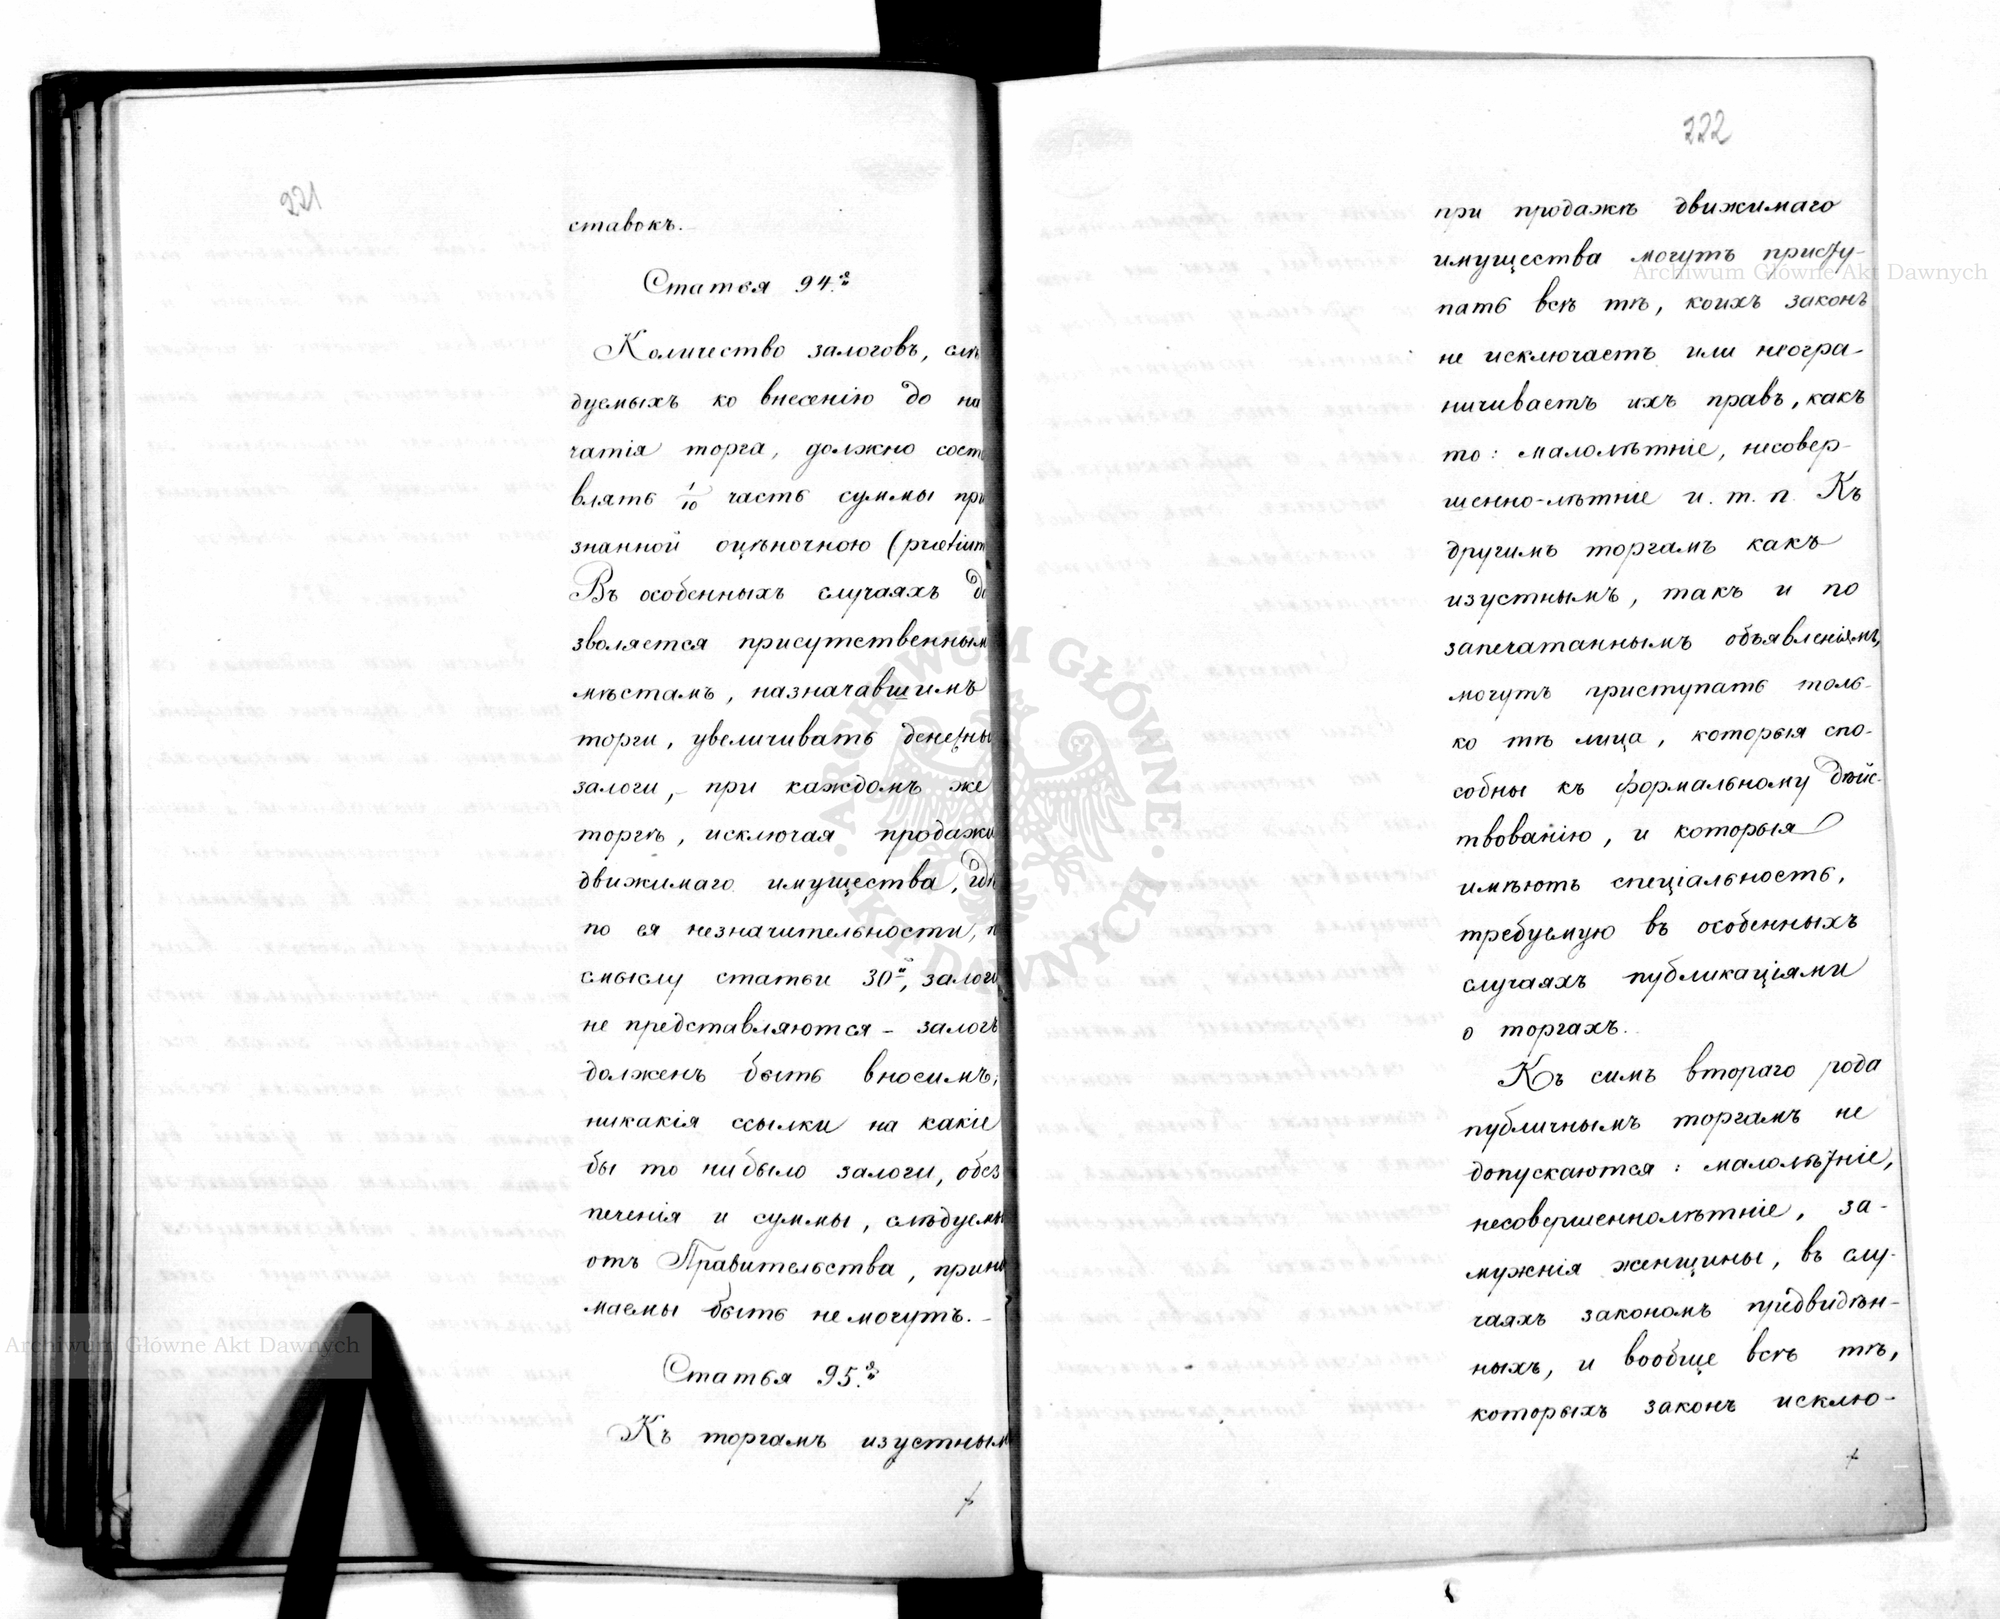 221
ставокъ.
Статья 94.я
Количество залоговъ, слѣ
дуемыхъ ко внесенію до на
чатія торга, должно соста
влять 1/10 часть суммы при
знанной оцѣночною (prætium
Въ особенныхъ случаяхъ до
зволяется присутственным
мѣстамъ, назначавшимъ
торги, увеличивать денежны
залоги, - при каждомъ же
торгѣ, исключая продажи
движимаго имущества, гдѣ
по ея незначительности, п
смыслу статьи 30й, залоги
не представляются - залогъ
долженъ быть вносимъ;
никакія ссылки на какіе
бы то нибыло залоги, обез
печенія и суммы, слѣдуемы
отъ Правительства, прини
маемы быть не могутъ. -
Статья 95.я
Къ торгамъ изустным
222
при продажѣ движимаго
имущества могутъ присту-
пать всѣ тѣ, коихъ законъ
не исключаетъ или неогра-
ничиваетъ ихъ правъ, какъ
то: малолѣтніе, несовер-
шенно-лѣтніе и. т. п. Къ
другимъ торгамъ какъ
изустнымъ, такъ и по
запечатаннымъ объявленіямъ,
могутъ приступать толь-
ко тѣ лица, которыя спо-
собны къ формальному дѣйс-
твованію, и которыя
имѣютъ спеціальность,
требуемую въ особенныхъ
случаяхъ публикаціями
о торгахъ.
Къ симъ втораго рода
публичнымъ торгамъ не
допускаются: малолѣтніе,
несовершеннолѣтніе, за-
мужнія женщины, въ слу-
чаяхъ закономъ предвидѣн-
ныхъ, и вообще всѣ тѣ,
которыхъ законъ исклю-
Archiwum Główne Akt Dawnych
Archiwum Główne Akt Dawnych
ARCHIWUM GŁÓWNE AKT DAWNYCH